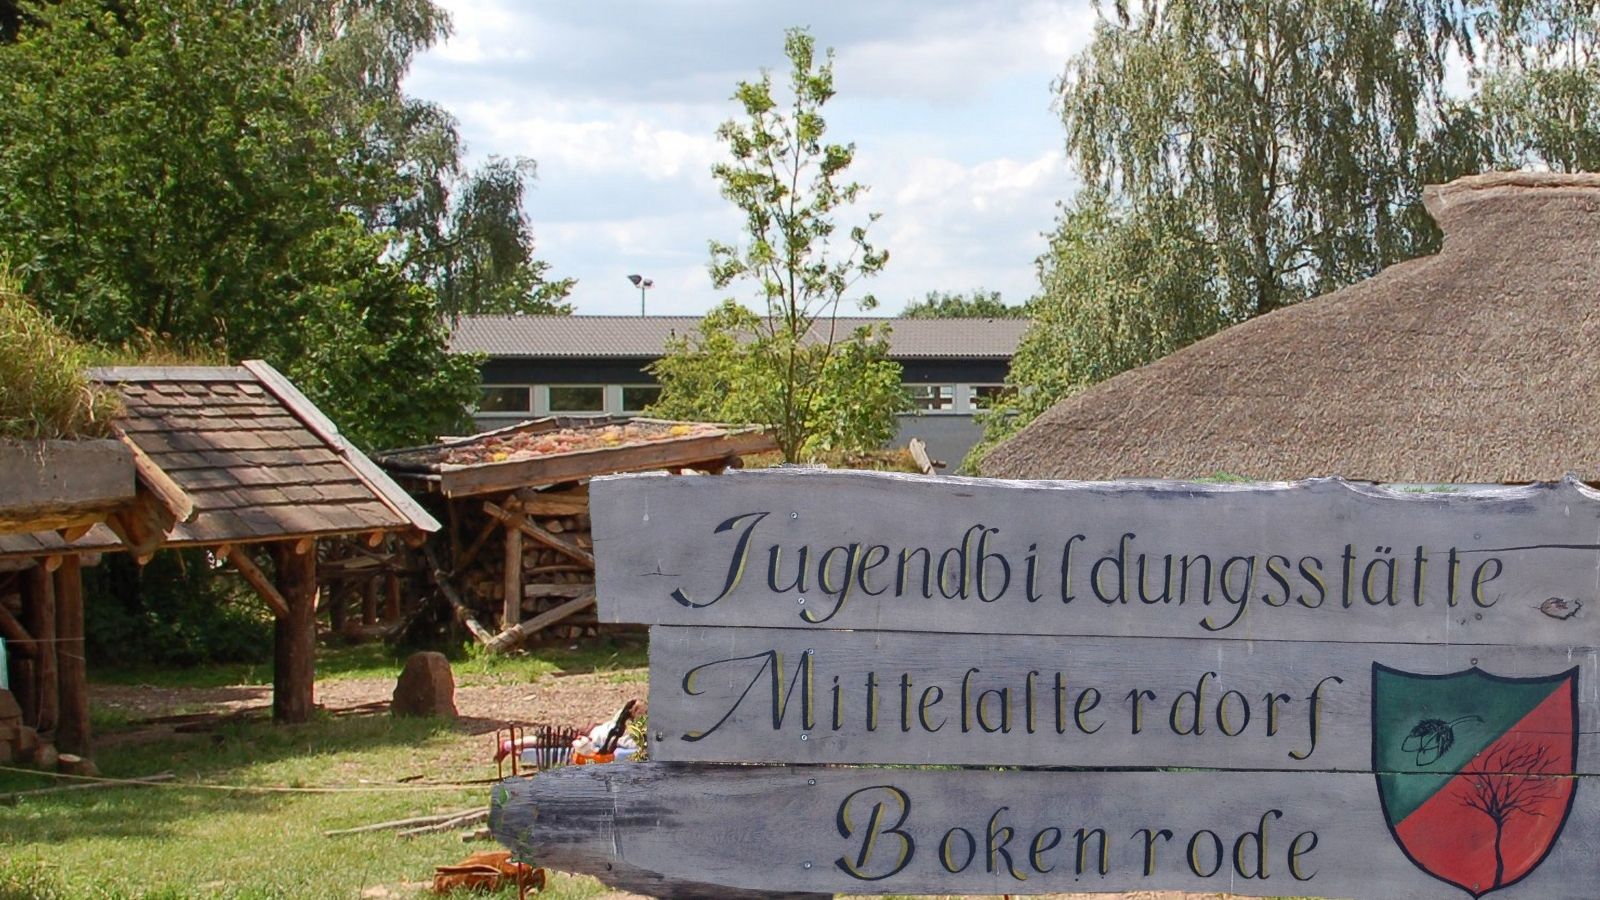 Jugendbildungsstätte
Mittelalterdorf
Bokenrode